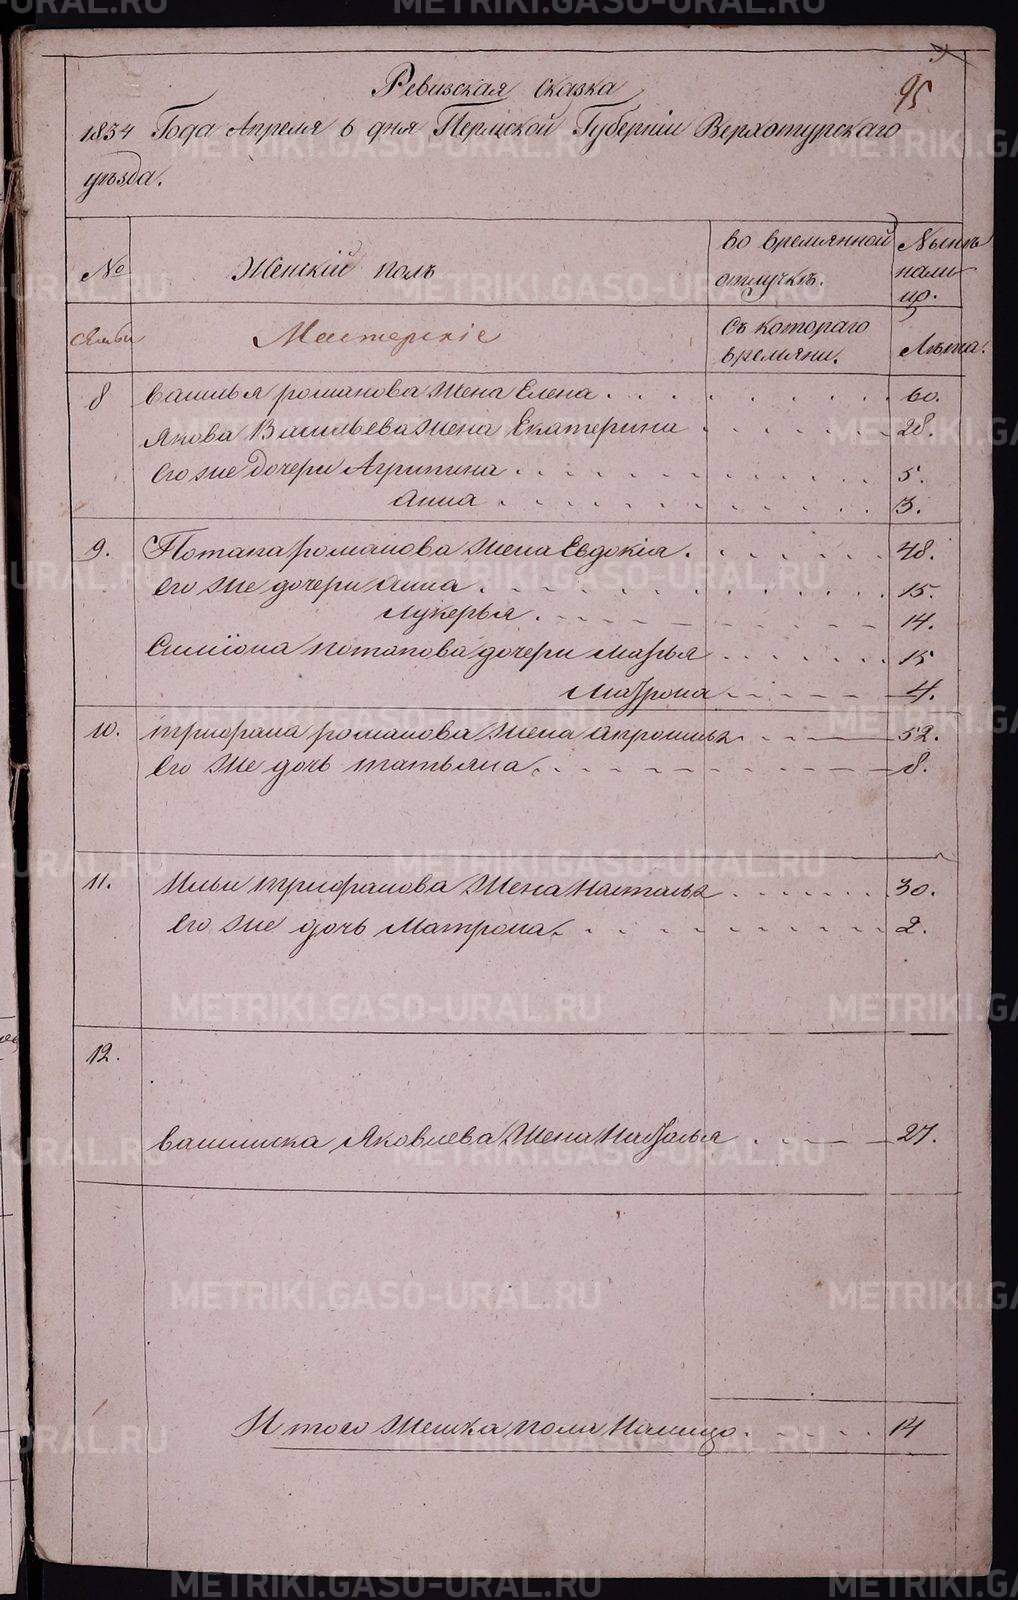 95
Ревизская сказка
1834 Года Апреля 6 дня Пермской Губернiи Верхотурскаго
уѣзда.
№
Женскiй полъ
во времянной
отлучкѣ.
Нынѣ
нали
цо.
семьи
Мастерскiе
Съ котораго
времяни.
Лѣта.
8 василья романова жена Елена 60.
Якова Васильева жена Екатерина 28.
его же дочери Агрипина 5.
анна 3.
9. Потапа романова жена Евдокiя. 48.
его же дочери анна 15.
лукерья 14.
Симiона потапова дочери марья 15
матрона 4.
10. трифана романова жена апросинья 52.
его же дочь татьяна 8.
11. Ильи трифанова жена наталья 30.
его же дочь матрона. 2.
12.
василиска Яковлева жена наталья 27.
Итого женска пола налицо 14
METRIKI.GASO-URAL.RU